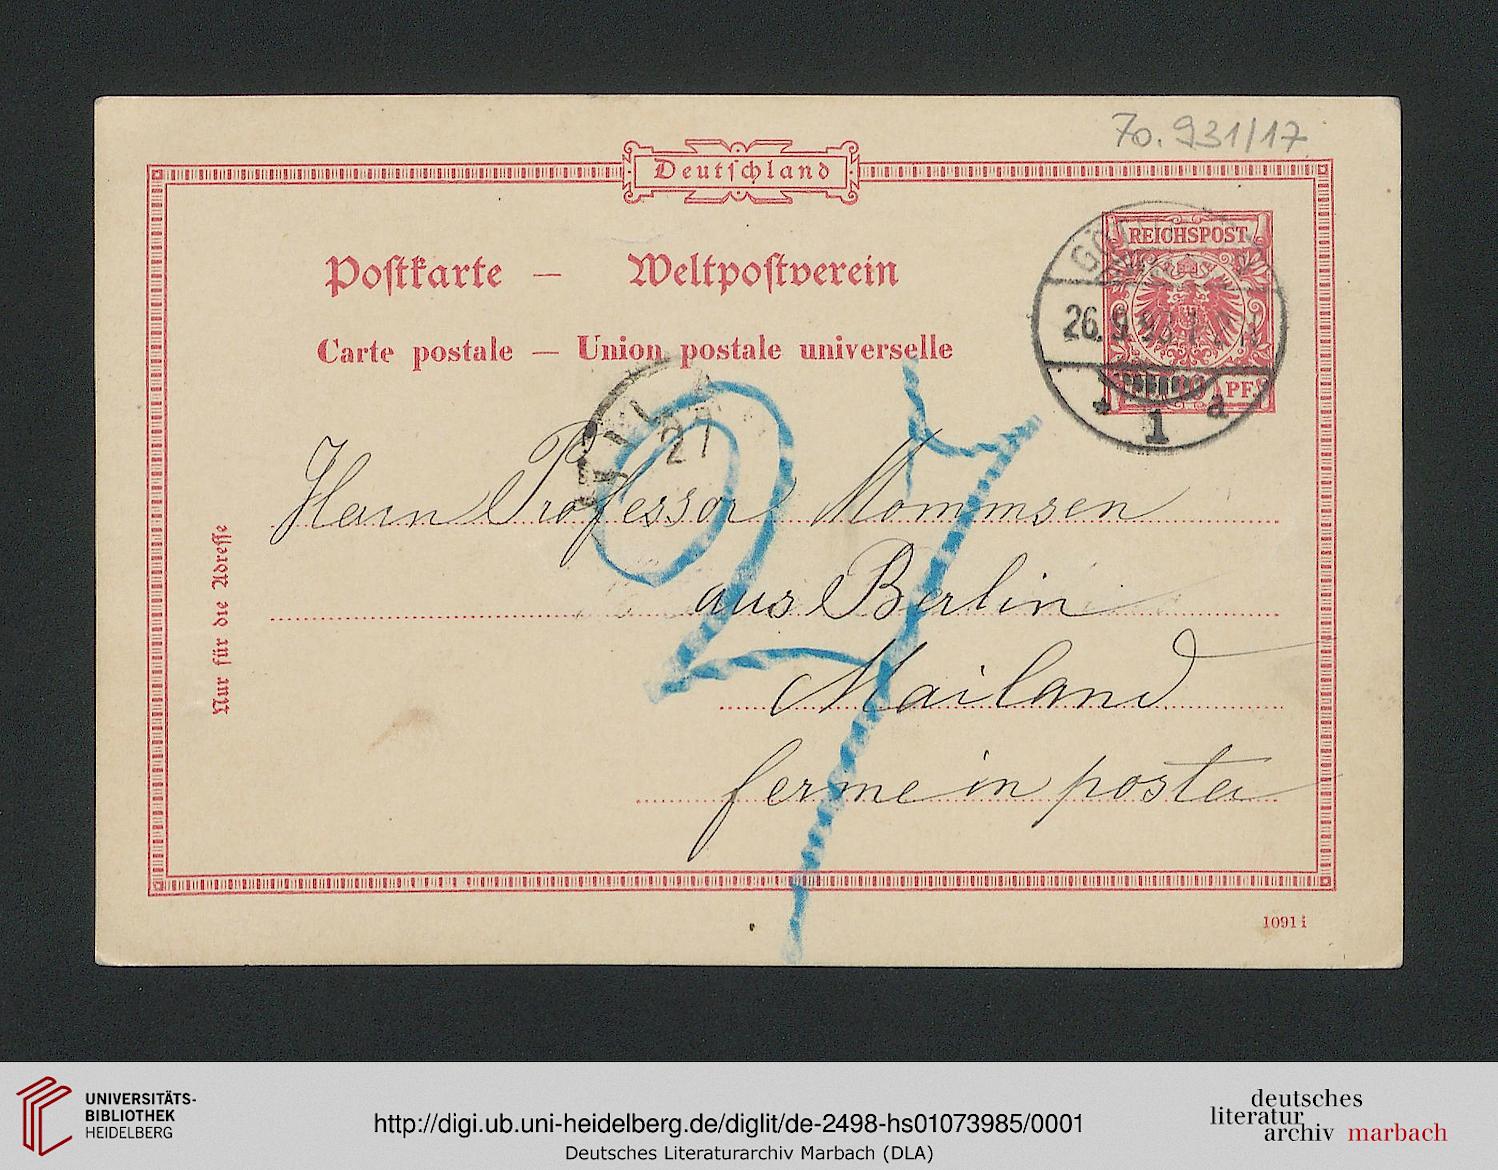 70.931/17
Deutſchland
REICHSPOST
Poſtkarte – Weltpoſtverein
Carte postale – Union postale universelle
26.9.93
PF.
* 1 a
27
27
Herrn Professor Mommsen
aus Berlin
Mailand
ferme in posta
Nur für die Adreſſe
1091 i
UNIVERSITÄTS-
BIBLIOTHEK
HEIDELBERG
http://digi.ub.uni-heidelberg.de/diglit/de-2498-hs01073985/0001
Deutsches Literaturarchiv Marbach (DLA)
deutsches
literatur
archiv marbach